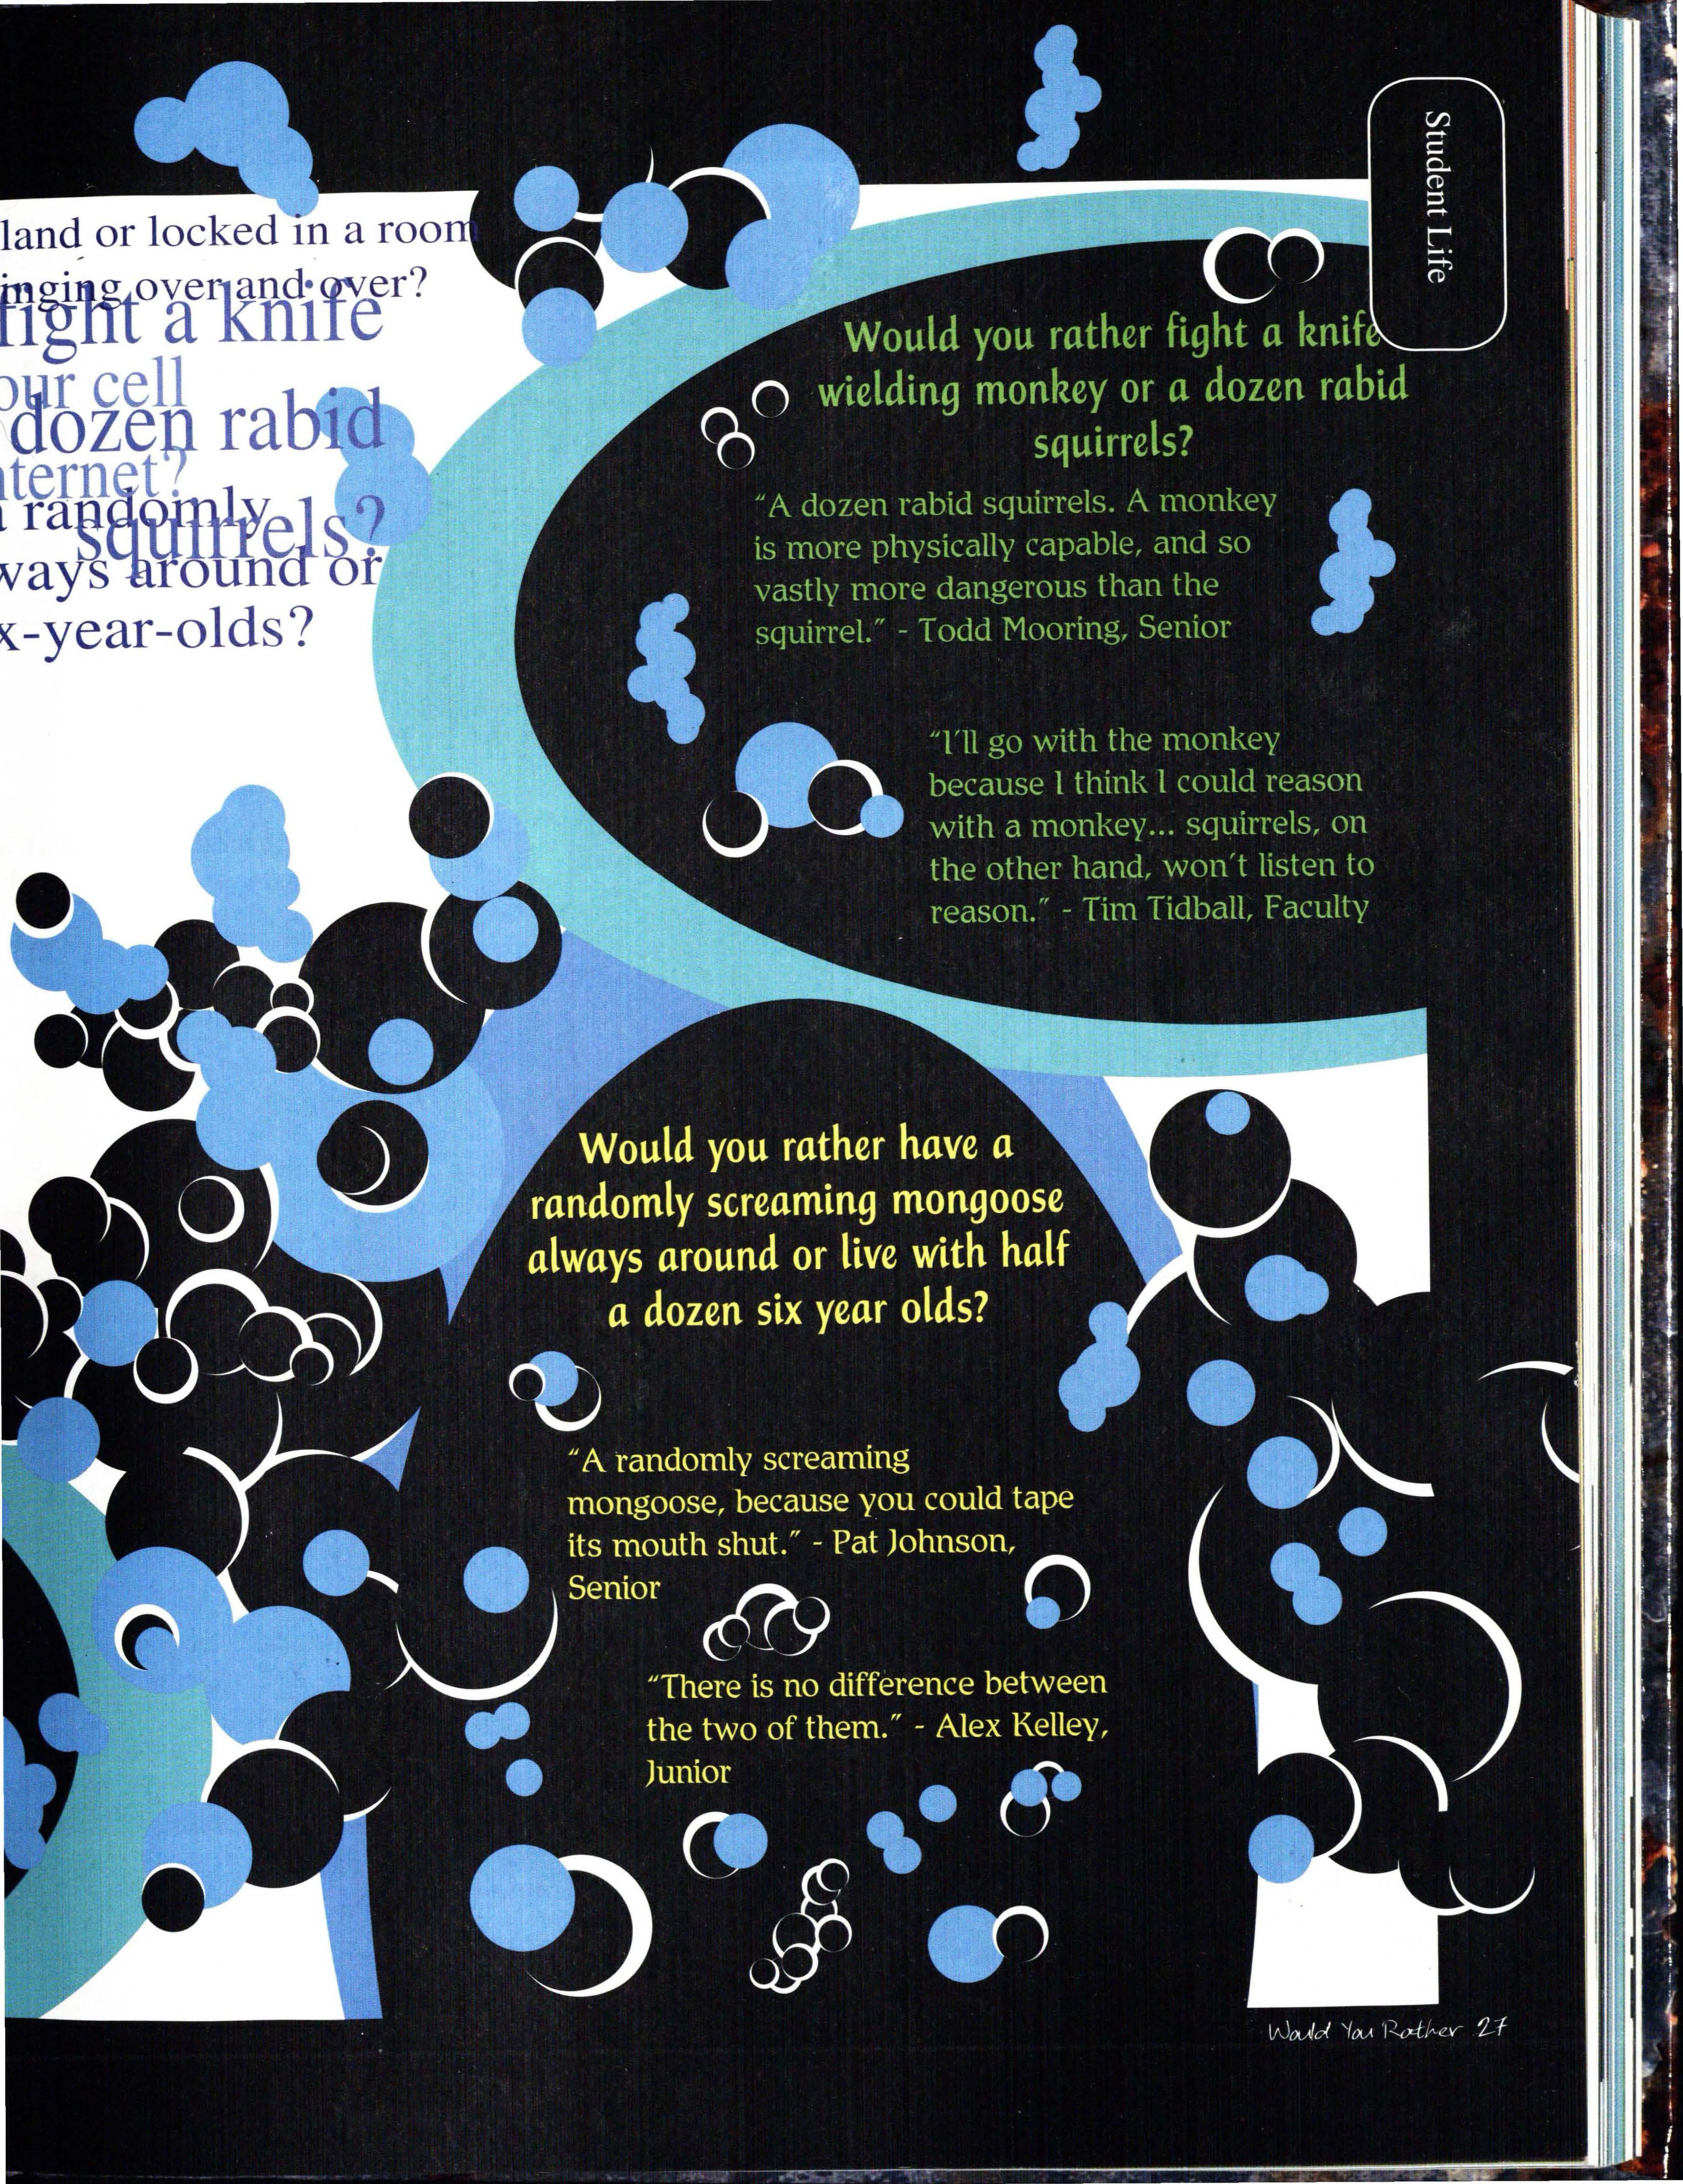 Student Life
land or locked in a room
inging over and over?
fight a knife
our cell
dozen rabid
nternet?
randomly
squirrels?
ways around or
x-year-olds?
Would you rather fight a knife
wielding monkey or a dozen rabid
squirrels?
“A dozen rabid squirrels. A monkey
is more physically capable, and so
vastly more dangerous than the
squirrel.” - Todd Mooring, Senior
“I'll go with the monkey
because I think I could reason
with a monkey... squirrels, on
the other hand, won't listen to
reason.” - Tim Tidball, Faculty
Would you rather have a
randomly screaming mongoose
always around or live with half
a dozen six year olds?
“A randomly screaming
mongoose, because you could tape
its mouth shut.” - Pat Johnson,
Senior
“There is no difference between
the two of them.” - Alex Kelley,
Junior
Would You Rather 27